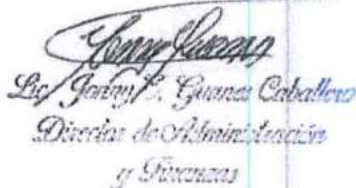 Lic. Jonny S. Guanes Caballero
Director de Administración
y Finanzas